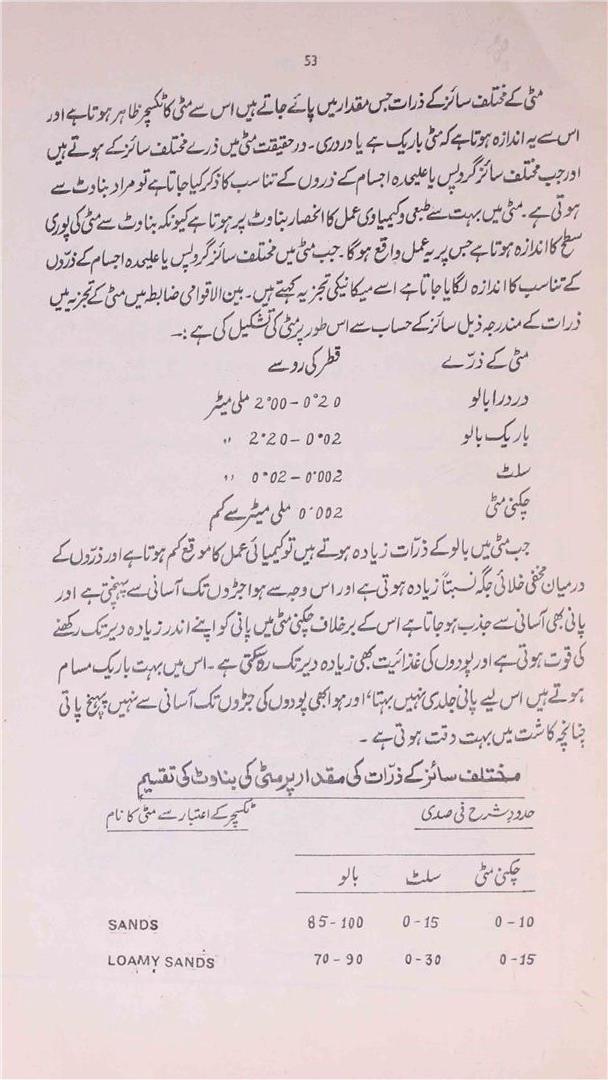 53
مٹی کے مختلف سائز کے ذرات جس مقدار میں پائے جاتے ہیں اس سے مٹی کا ٹکسچر ظاہر ہوتا ہے اور
اس سے یہ اندازہ ہوتا ہے کہ مٹی باریک ہے یا دردری۔ درحقیقت مٹی میں ذرے مختلف سائز کے ہوتے ہیں
اور جب مختلف سائز گروپس یا علیحدہ اجسام کے ذروں کے تناسب کا ذکر کیا جاتا ہے تو مراد بناوٹ سے
ہوتی ہے۔ مٹی میں بہت سے طبعی و کیمیاوی عمل کا انحصار بناوٹ پر ہوتا ہے کیونکہ بناوٹ سے مٹی کی پوری
سطح کا اندازہ ہوتا ہے جس پر یہ عمل واقع ہوگا۔ جب مٹی میں مختلف سائز گروپس یا علیحدہ اجسام کے ذرّوں
کے تناسب کا اندازہ لگایا جاتا ہے اسے میکانیکی تجزیہ کہتے ہیں۔ بین الاقوامی ضابطہ میں مٹی کے تجزیہ میں
ذرات کے مندرجہ ذیل سائز کے حساب سے اس طور پر مٹی کی تشکیل کی ہے :۔
مٹی کے ذرّے قطر کی رو سے
دردرا بالو 2.00-0.20 ملی میٹر
باریک بالو 2.20-0.02 〃
سلٹ 0.02-0.002 〃
چکنی مٹی 0.002 ملی میٹر سے کم
جب مٹی میں بالو کے ذرّات زیادہ ہوتے ہیں تو کیمیائی عمل کا موقع کم ہوتا ہے اور ذرّوں کے
درمیان مخفی خلائی جگہ نسبتاً زیادہ ہوتی ہے اور اس وجہ سے ہوا جڑوں تک آسانی سے پہنچتی ہے اور
پانی بھی آسانی سے جذب ہو جاتا ہے اس کے برخلاف چکنی مٹی میں پانی کو اپنے اندر زیادہ دیر تک رکھنے
کی قوت ہوتی ہے اور پودوں کی غذائیت بھی زیادہ دیر تک رکھ سکتی ہے۔ اس میں بہت باریک مسام
ہوتے ہیں اس لیے پانی جلدی نہیں بہتا، اور ہوا بھی پودوں کی جڑوں تک آسانی سے نہیں پہنچ پاتی
چنانچہ کاشت میں بہت دقت ہوتی ہے۔
مختلف سائز کے ذرات کی مقدار پر مٹی کی بناوٹ کی تقسیم
حدود شرح فی صدی ٹکسچر کے اعتبار سے مٹی کا نام
چکنی مٹی سلٹ بالو
SANDS 85-100 0-15 0-10
LOAMY SANDS 70-90 0-30 0-15